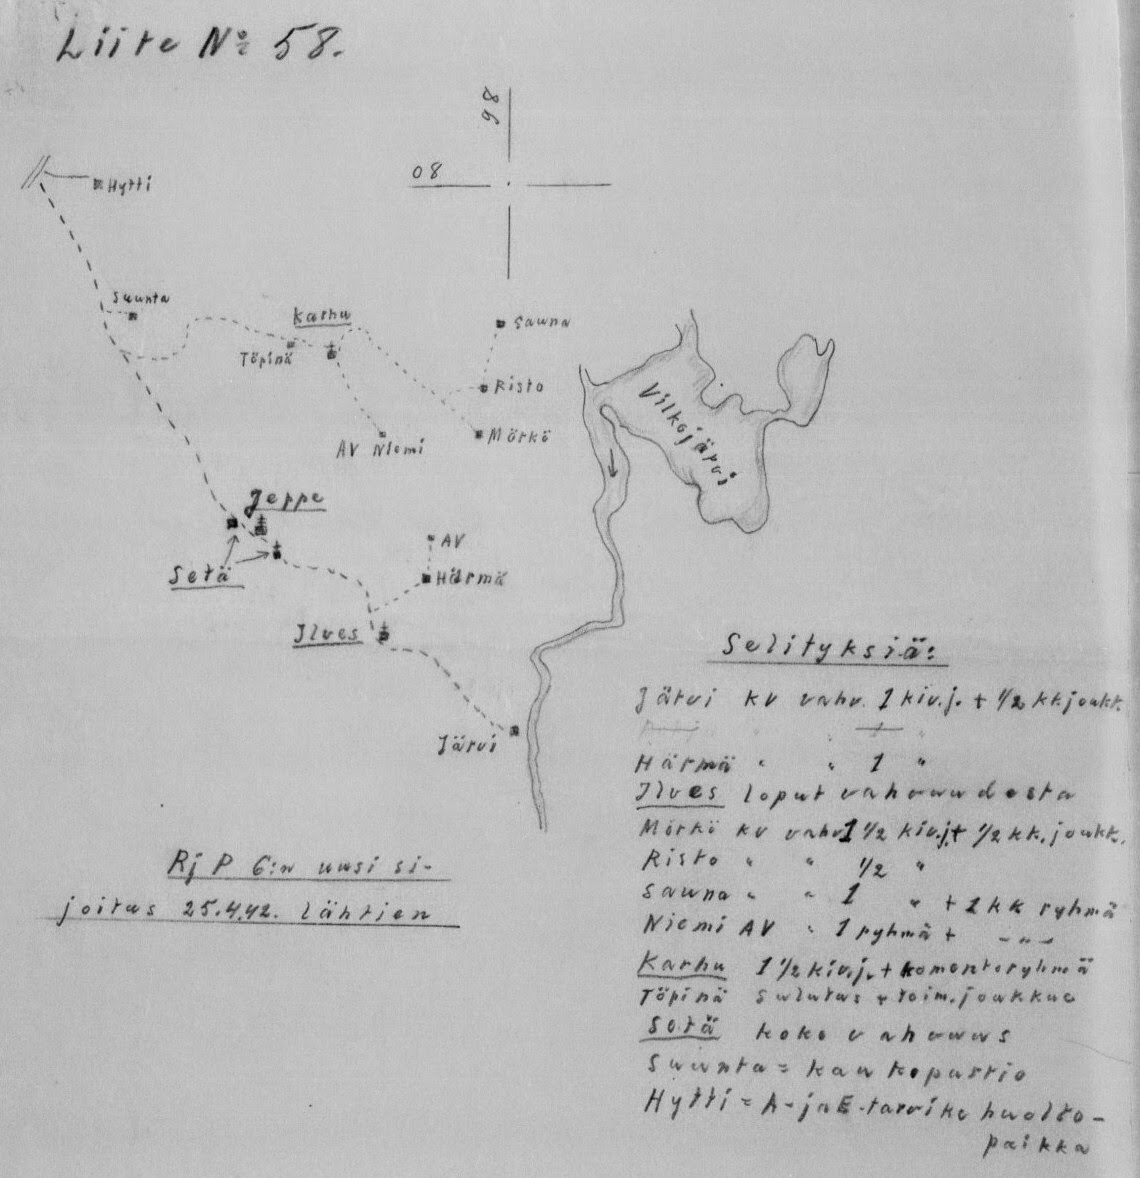 Liite Nº 58.
98
08
Hytti
Suunta
Karhu
Sauna
Töpinä
Risto
Vilkojärvi
AV Niemi
Mörkö
Jeppe
AV
Setä
Härmä
Ilves
Järvi
Selityksiä:
Järvi kv vahv. 1 kiv.j. + 1/2 kk.joukk.
Härmä " " 1 "
Ilves loput vahvuudesta
Mörkö kv vahv 1 1/2 kiv.j. + 1/2 kk.joukk.
Risto " " 1/2 "
Sauna " " 1 " + 1 kk ryhmä
Niemi AV " 1 ryhmä + -"-
Karhu 1 1/2 kiv.j. + komentoryhmä
Töpinä Sulutus + toim.joukkue
Setä koko vahvuus
Suunta = kaukopartio
Hytti = A- ja E-tarvike huolto-
paikka
Rj P 6:n uusi si-
joitus 25.4.42. lähtien